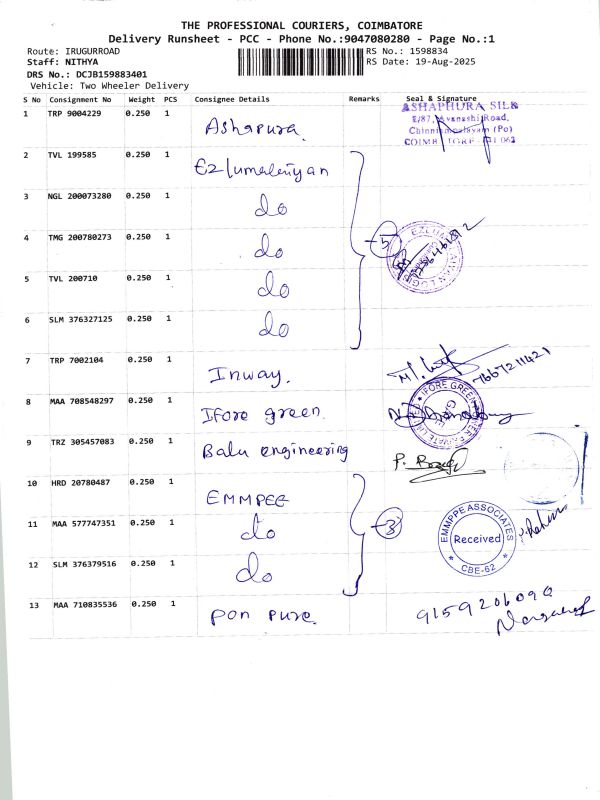 THE PROFESSIONAL COURIERS, COIMBATORE
Delivery Runsheet - PCC - Phone No.:9047080280 - Page No.:1
Route: IRUGURROAD RS No.: 1598834
Staff: NITHYA RS Date: 19-Aug-2025
DRS No.: DCJB159883401
Vehicle: Two Wheeler Delivery
S No Consignment No Weight PCS Consignee Details Remarks Seal & Signature
1 TRP 9004229 0.250 1 Ashapura ASHAPHURA SILK
Avanashi Road,
2 TVL 199585 0.250 1 Ezlumalaiyan
3 NGL 200073280 0.250 1 do
4 TMG 200780273 0.250 1 do 5
5 TVL 200710 0.250 1 do
6 SLM 376327125 0.250 1 do
7 TRP 7002104 0.250 1 Inway. 7667211421
8 MAA 708548297 0.250 1 Ifore green IFORE GREEN
9 TRZ 305457083 0.250 1 Balu engineering
10 HRD 20780487 0.250 1 EMMPEE
11 MAA 577747351 0.250 1 do 3 EMMPPE ASSOCIATES
Received
CBE-62
12 SLM 376379516 0.250 1 do
13 MAA 710835536 0.250 1 Pon pure.